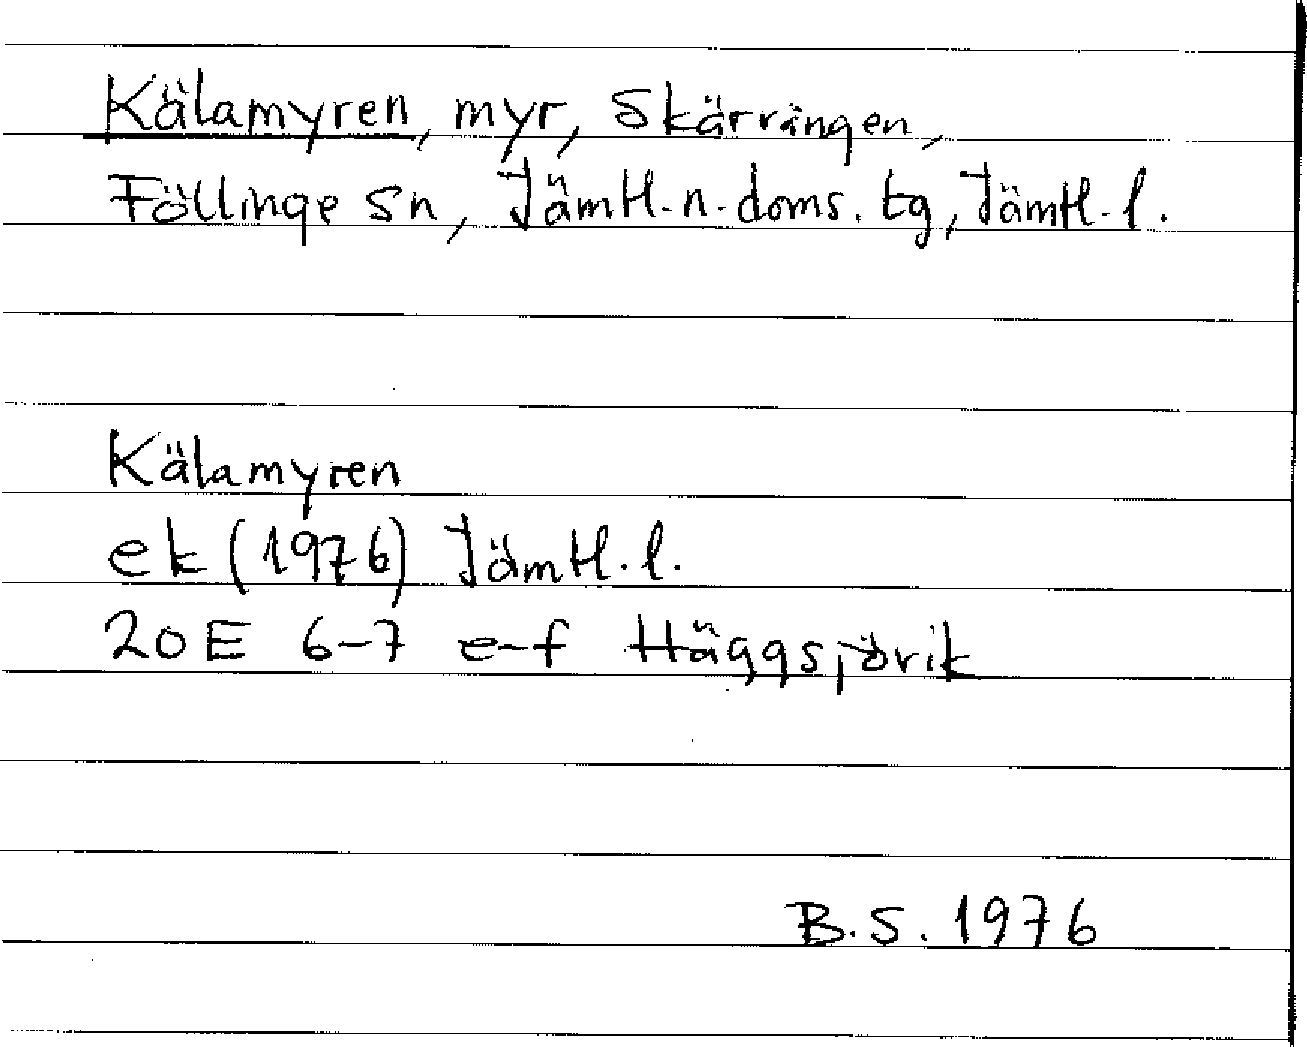 Kälamyren, myr, Skärvången,
Föllinge sn, Jämtl. n. doms. tg, Jämtl. l.
Kälamyren
ek (1976) Jämtl. l.
20 E 6-7 e-f Häggsjövik
B.S. 1976